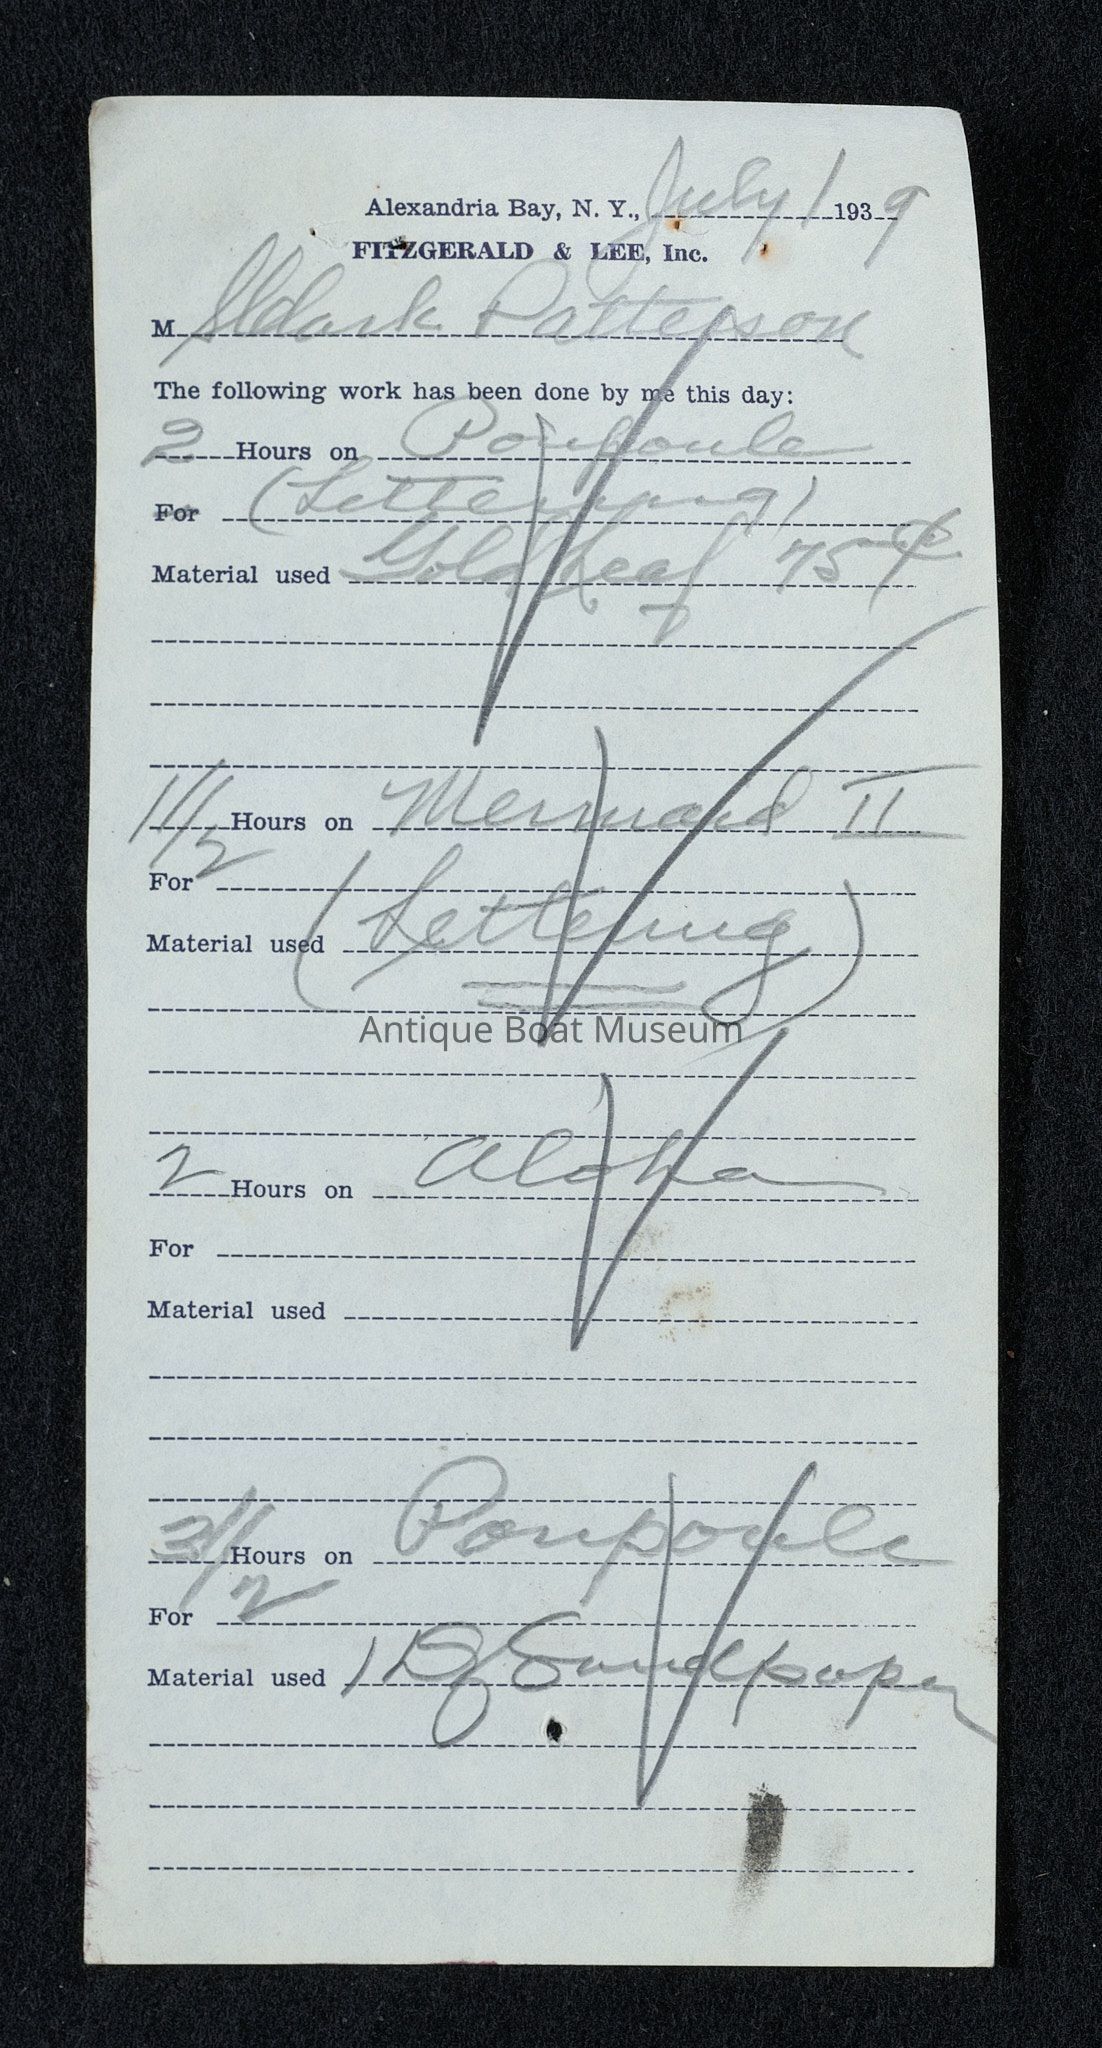 Alexandria Bay, N. Y., July 1 1939
FITZGERALD & LEE, Inc.
M Clark Patterson
The following work has been done by me this day:
2 Hours on Poupoule
For (Lettering)
Material used Gold Leaf 75¢
1 1/2 Hours on Mermaid II
For
Material used (Lettering)
Antique Boat Museum
2 Hours on Aloha
For
Material used
3 1/2 Hours on Poupoule
For
Material used 1 Sandpaper